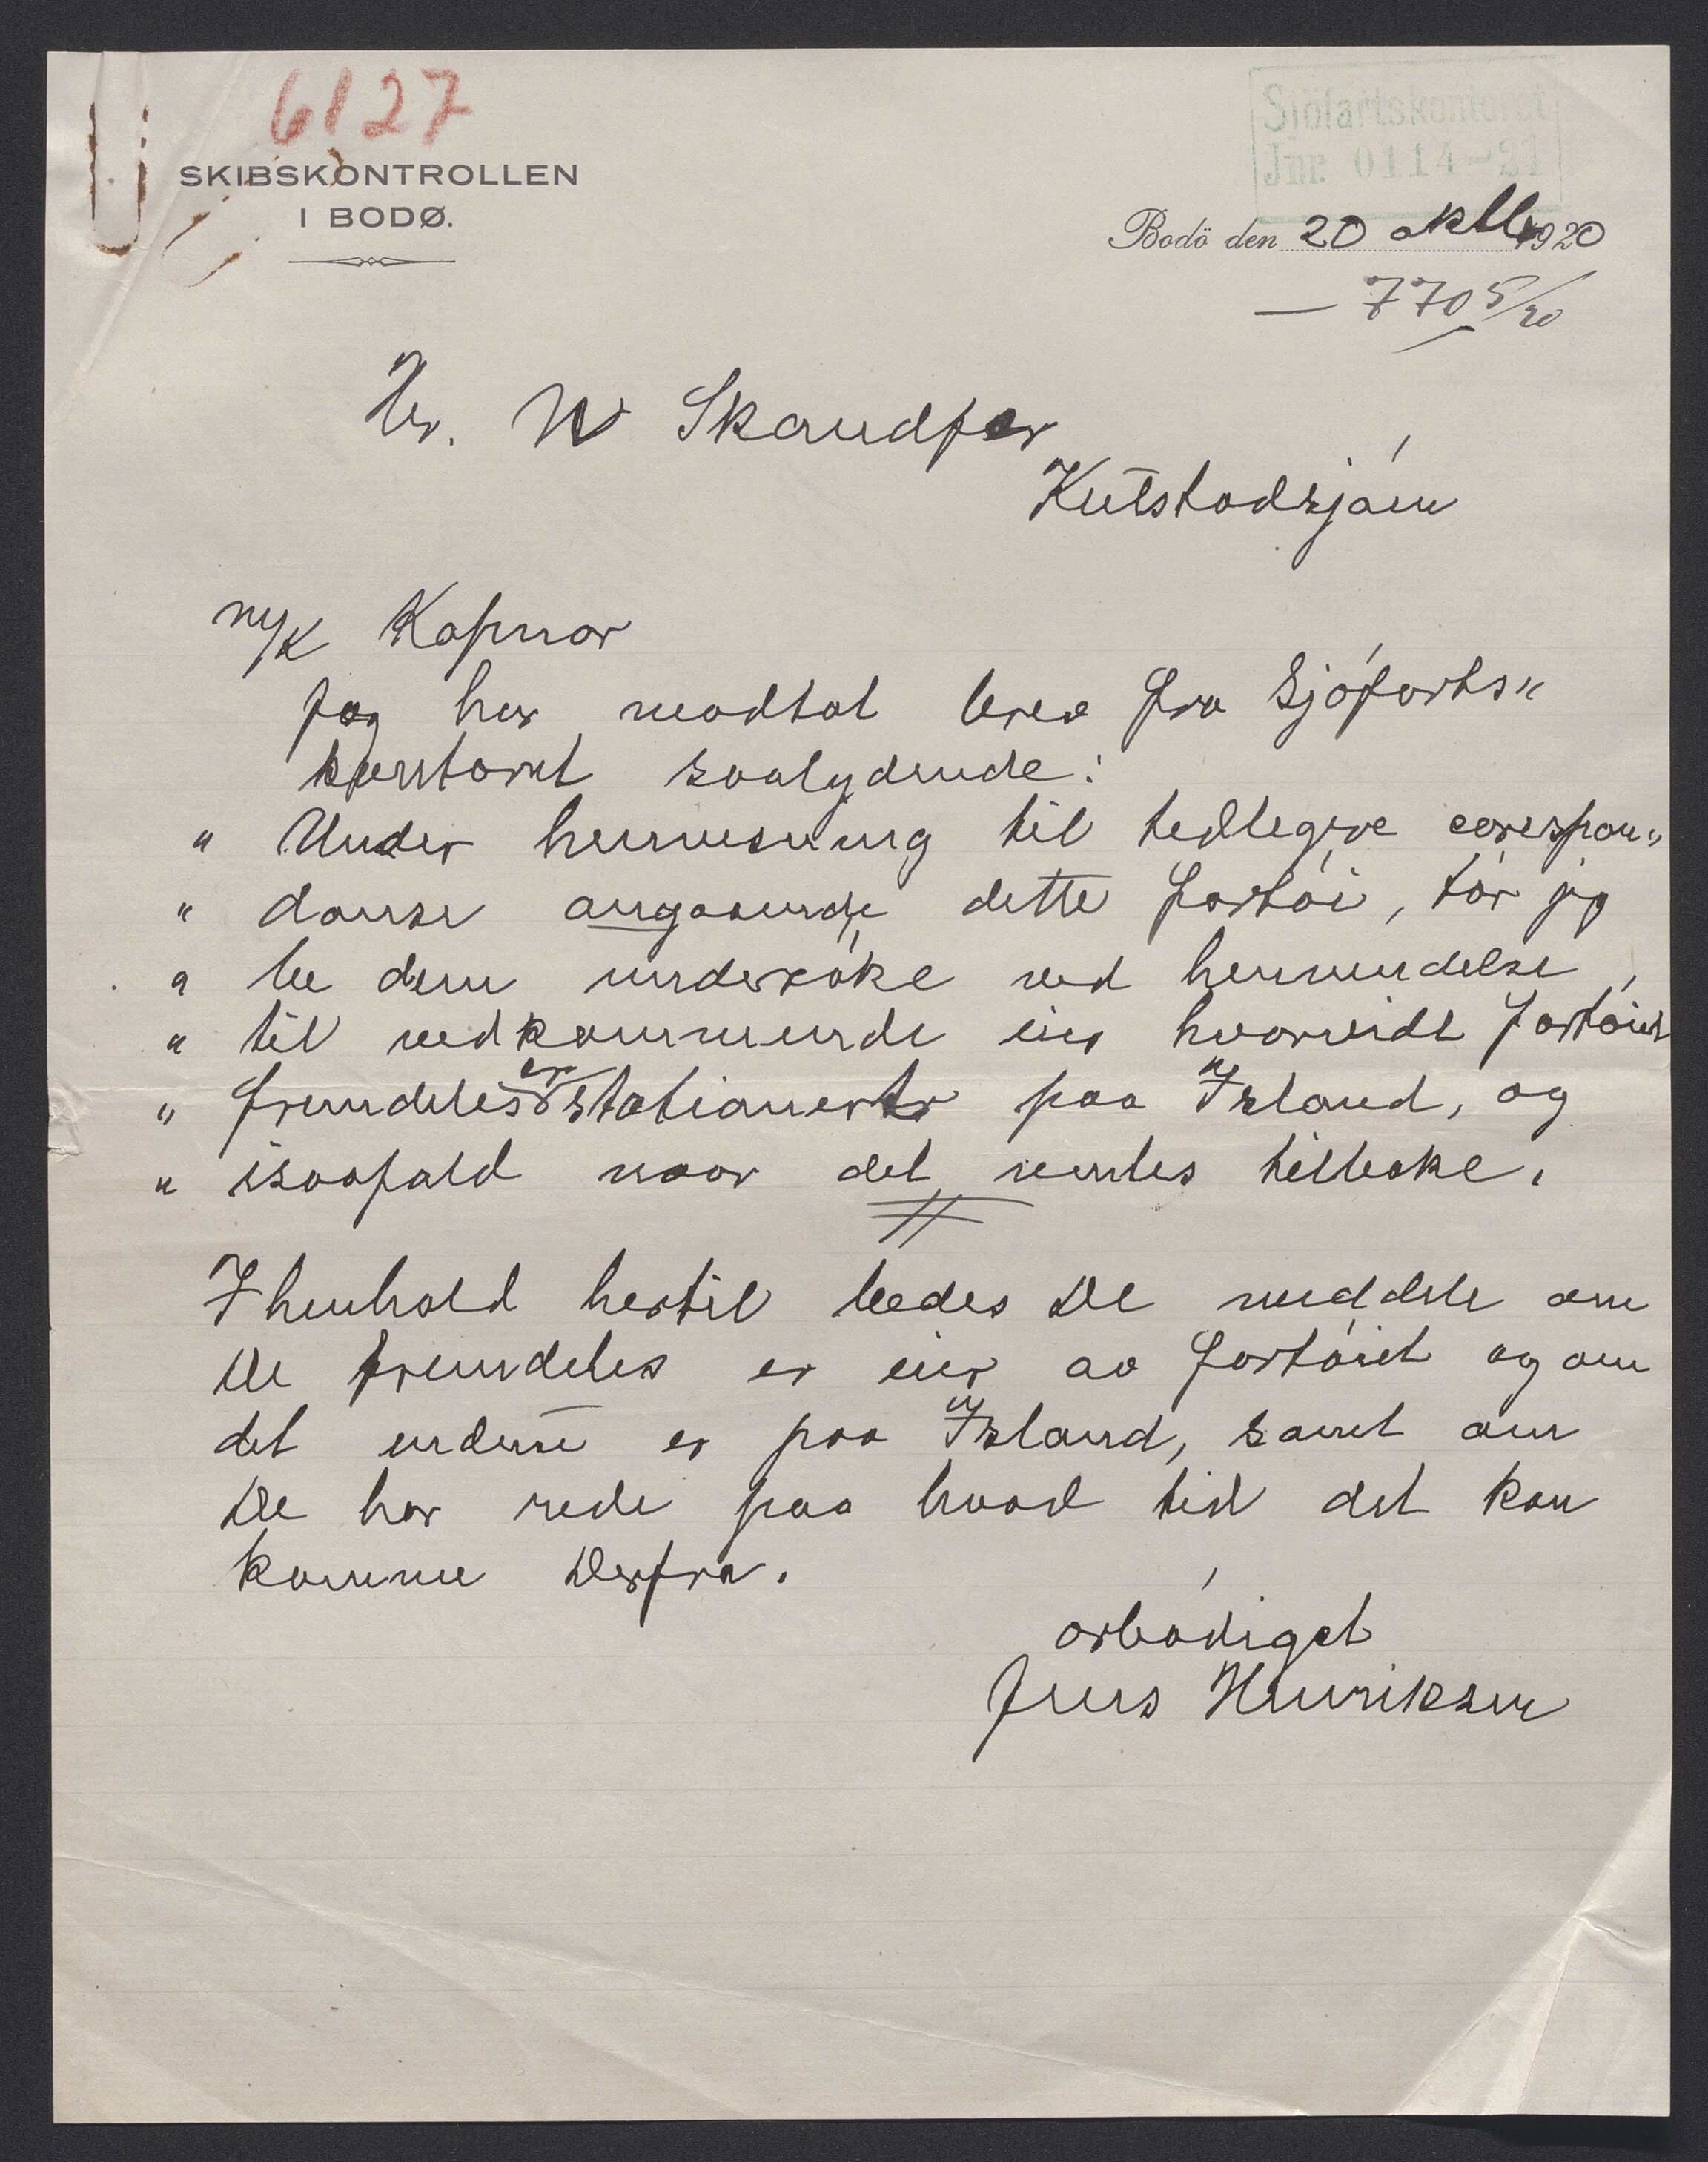 6127
SKIBSKONTROLLEN
I BODØ.
Sjöfartskontoret
Jnr. 0114-21
Bodö den 20 oktbr 1920
— 7705/20
Hr. W Skaudfer
m/k Kopnor
Jeg har modtat brev fra Sjöfarts"
kontoret saalydende:
" Under henvisning til tidligere corespon"
" danse angaaende dette fartöi, tör jeg
" be dem undersöke ved henvendelse
" til vedkommende eier hvorvidt fartöiet
" fremdeles er stationert paa Island, og
" isaafald naar det ventes tilbake.
I henhold hertil bedes De meddele om
De fremdeles er eier av fartöiet og om
det endnu er paa Island, samt om
De har rede paa hvad tid det kan
komme Derfra.
ærbödigst
Jens Henriksen